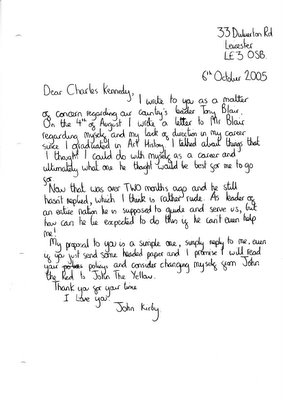 33 Dulverton Rd
Leicester
LE3 0SB.
6th October 2005
Dear Charles Kennedy,
I write to you as a matter
of concern regarding our country's leader Tony Blair.
On the 4th of August I wrote a letter to Mr Blair
regarding myself and my lack of direction in my career
since I graduated in Art History. I talked about things that
I thought I could do with myself as a career and
ultimately what one he thought would be best for me to go
for.
Now that was over TWO months ago and he still
hasn't replied, which I think is rather rude. As leader of
an entire nation he is supposed to guide and serve us, but
how can he be expected to do this if he can't even help
me!
My proposal to you is a simple one, simply reply to me, even
if you just send some headed paper and I promise I will read
you policys and consider changing myself from John
the Red to John The Yellow.
Thank you for your time
I Love you
John Kirby.